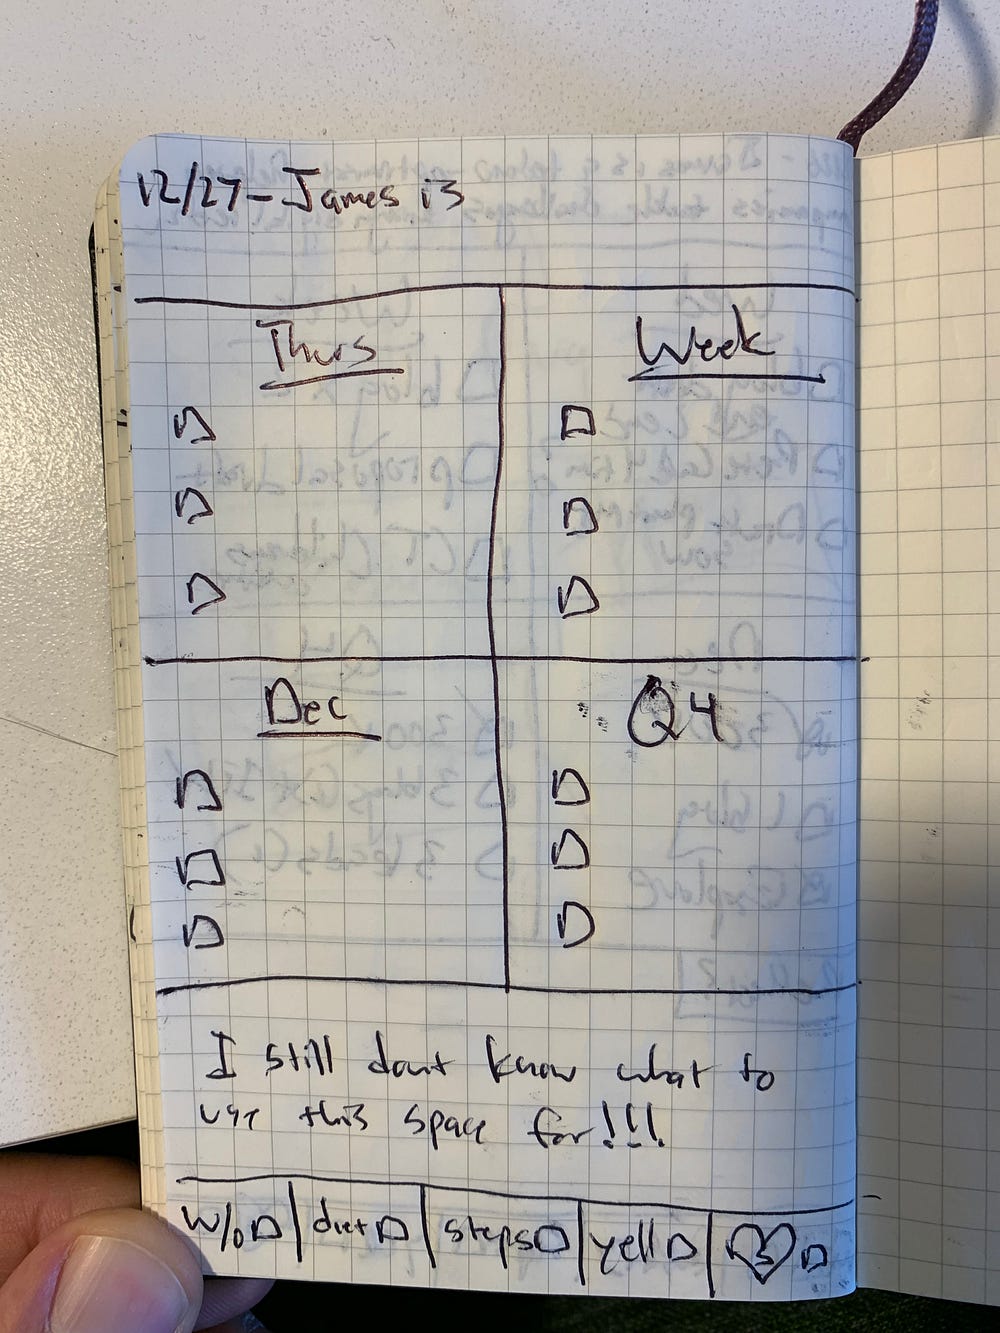 12/27 - James is
Thurs
Week
Dec
Q4
I still dont know what to
use this space for!!!
w/o | diet | steps | yell |